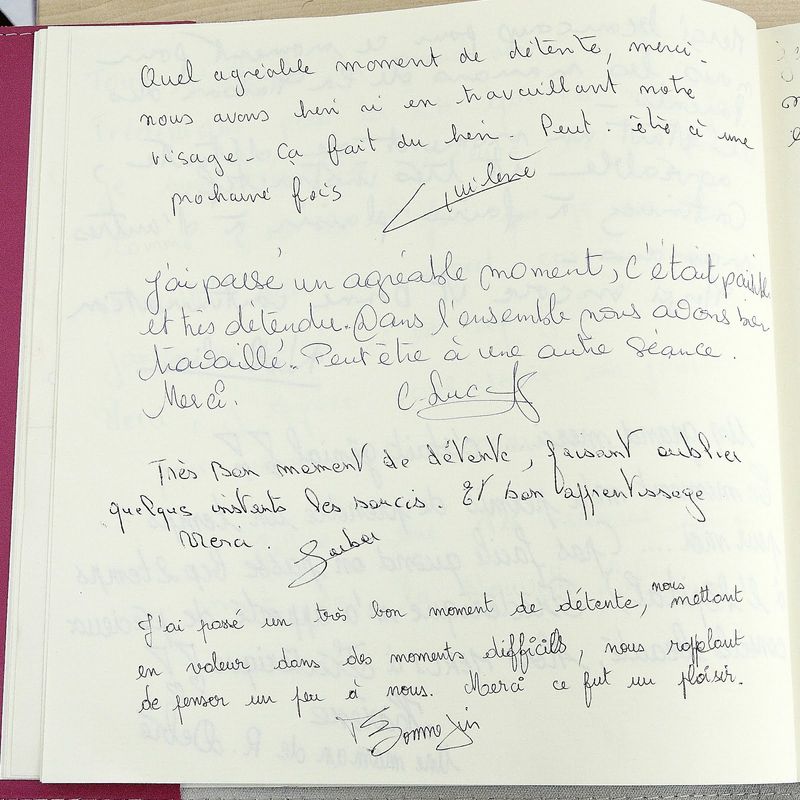 Quel agréable moment de détente, merci.
nous avons bien ri en travaillant notre
visage. Ca fait du bien. Peut-être à une
prochaine fois
J'ai passé un agréable moment, c'était paisible
et très detendu. Dans l'ensemble nous avons bien
travaillé. Peut être à une autre séance.
Merci. C. Luc
Très Bon moment de détente, faisant oublier
quelques instants les soucis. Et bon apprentissage
Merci.
J'ai passé un très bon moment de détente, nous mettant
en valeur dans des moments difficils, nous rapplant
de penser un peu à nous. Merci ce fut un plaisir.